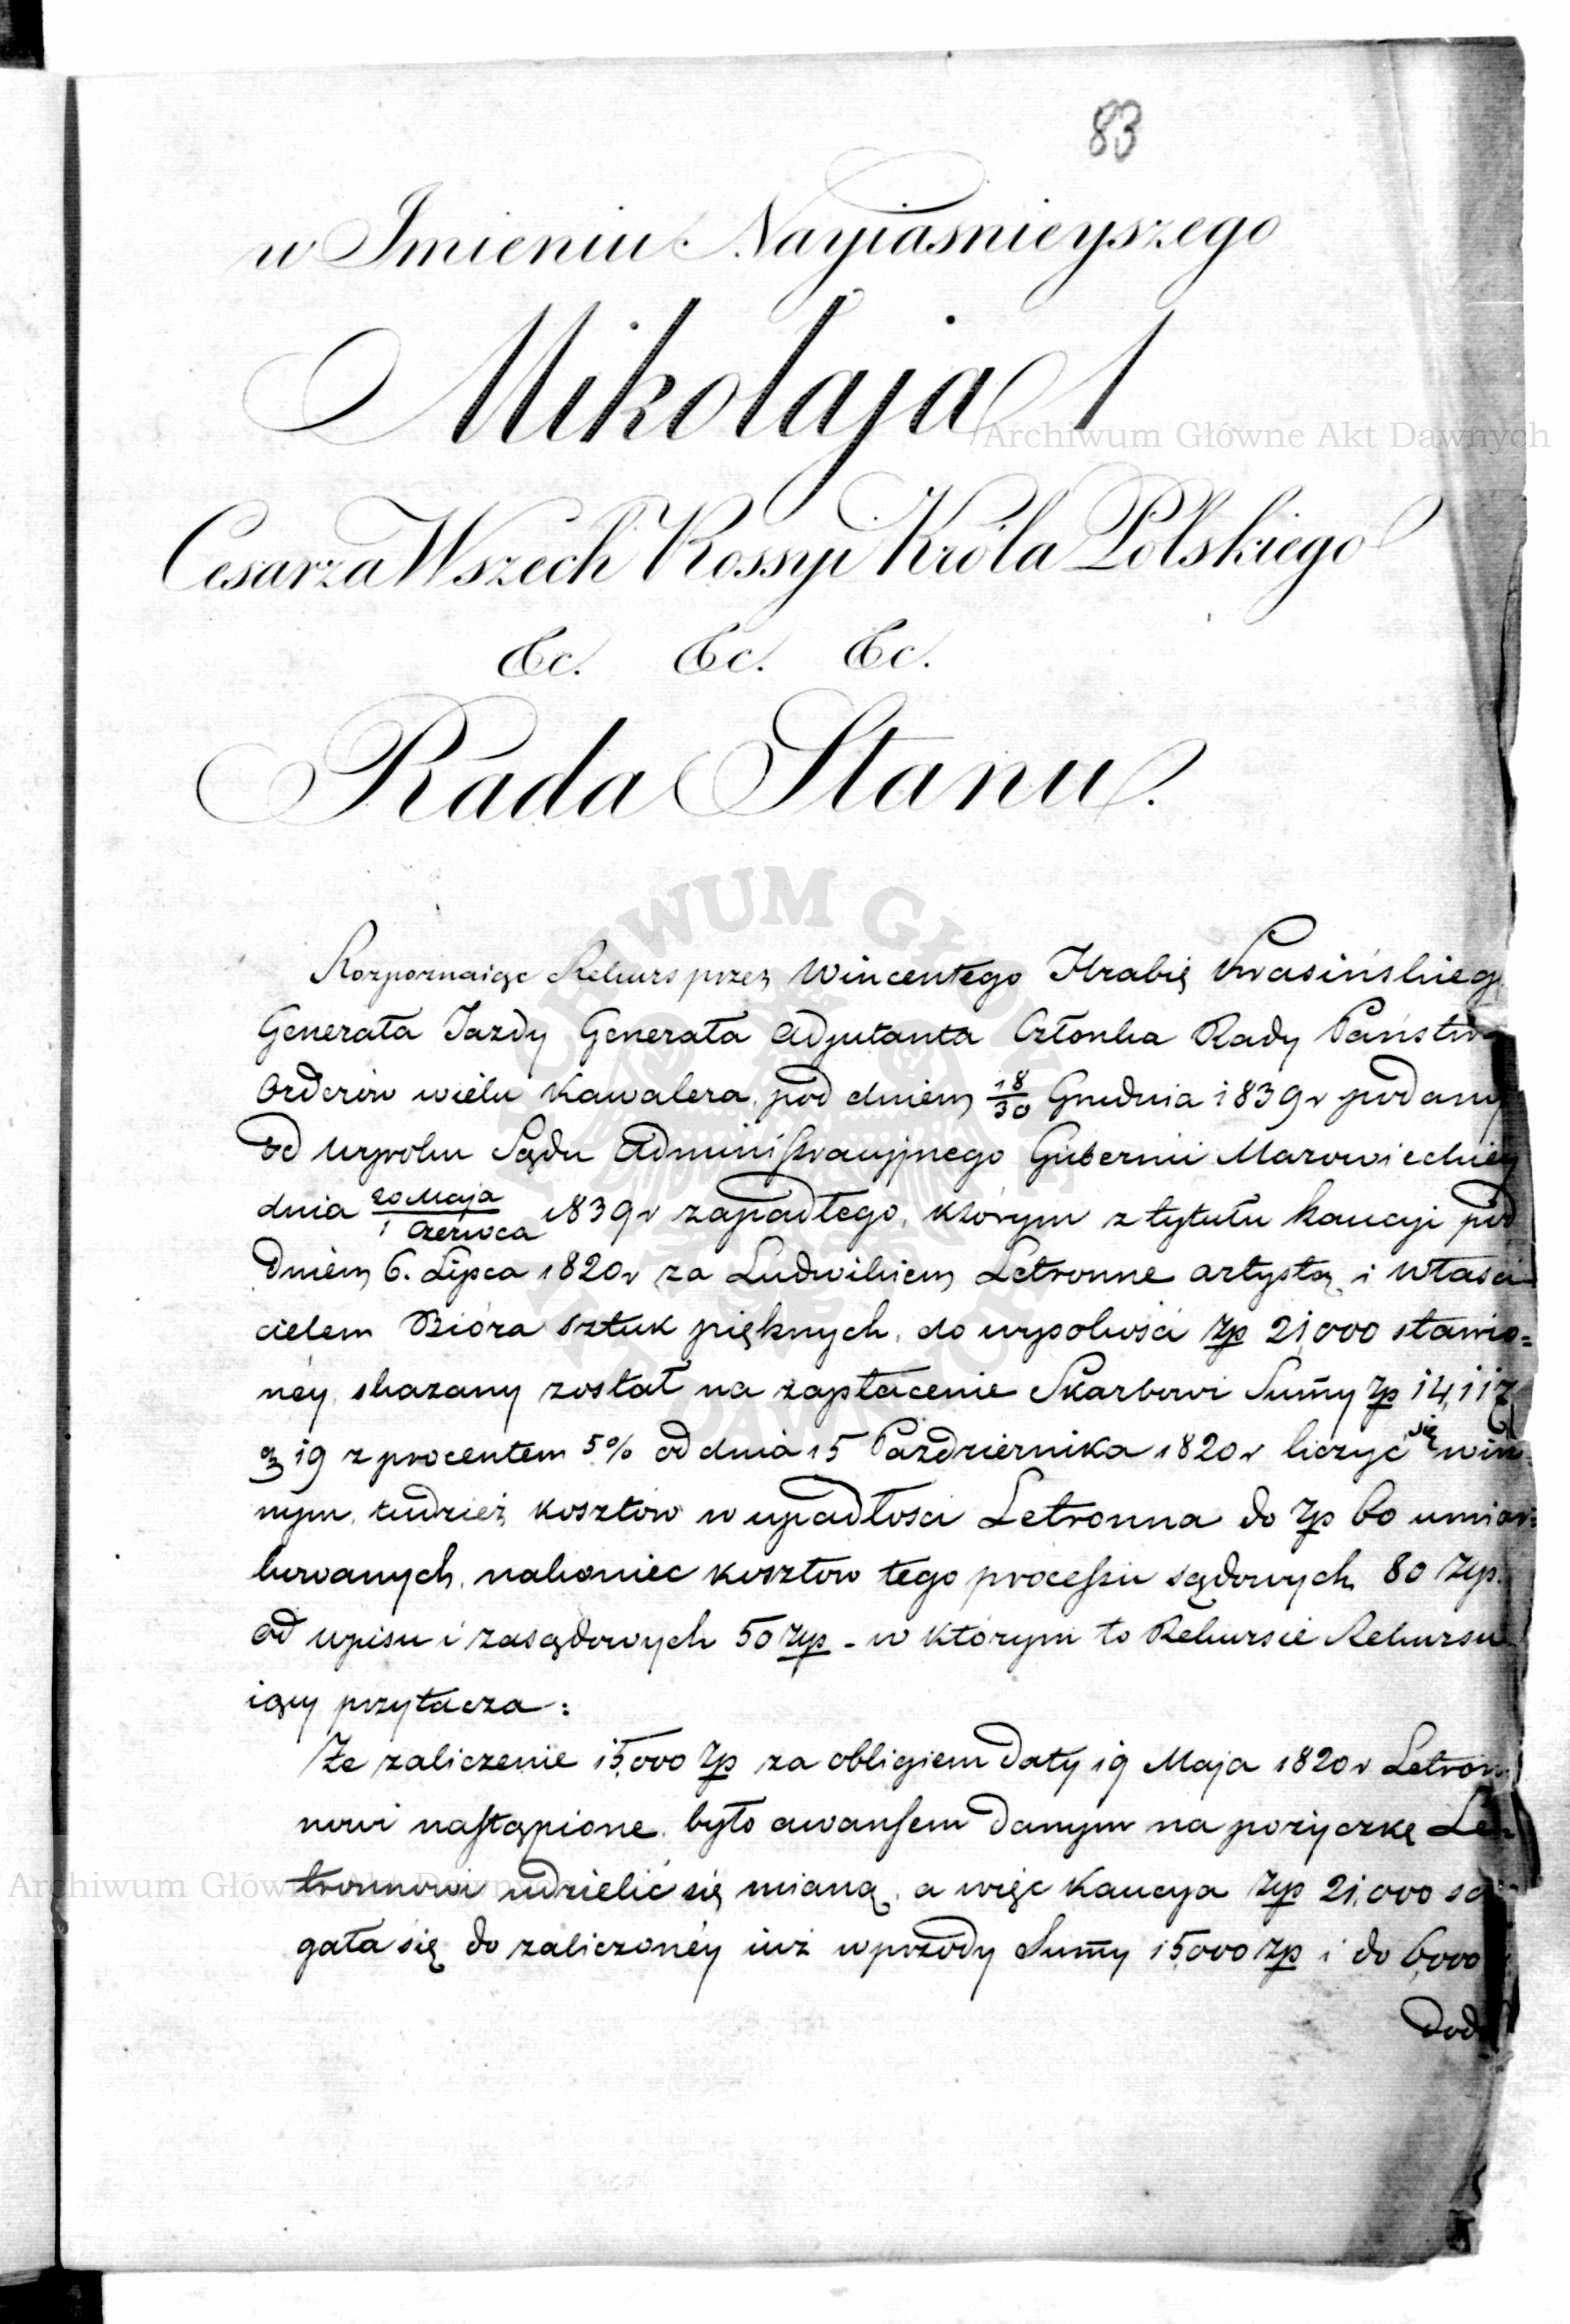 83
w Imieniu Nayiaśnieyszego
Mikołaja I
Cesarza Wszech Rossyi Króla Polskiego
&c. &c. &c.
Rada Stanu.
Rozpoznaiąc Rekurs przez Wincentego Hrabię Krasińskieg
Generała Jazdy Generała Adjutanta Członka Rady Państwa
Orderów wielu Kawalera, pod dniem 18/30 Grudnia 1839 r podany
od wyroku Sądu Administracyjnego Gubernii Mazowieckiéy
dnia 20 Maja/1 Czerwca 1839 r zapadłego, którym z tytułu kaucyi pod
dniem 6. Lipca 1820 r za Ludwikiem Letronne artystą i właści
cielem Bióra sztuk pięknych, do wysokości zp 21,000 stawio=
néy skazany został na zapłacenie Skarbowi Summy zp 14,117
g 19 z procentem 5% od dnia 15 Października 1820 r liczyć się win
nym, tudzież kosztów w upadłości Letronna do zp 60 umiar=
kowanych, nakoniec kosztów tego processu sądowych 80 Zp.
od wpisu i zasądowych 50 zp - w którym to Rekursie Rekursu
iący przytacza:
Że zaliczenie 15,000 zp za obligiem daty 19 Maja 1820 r Letron
nowi nastąpione, było awansem danym na pożyczkę Le=
tronnowi udzielić się mianą, a więc Kaucya zp 21,000 
gała się do zaliczonéy iuż wprzódy Summy 15000 zp i do 6,000
Archiwum Główne Akt Dawnych
ARCHIWUM GŁÓWNE AKT DAWNYCH
Archiwum Główne Akt Dawnych